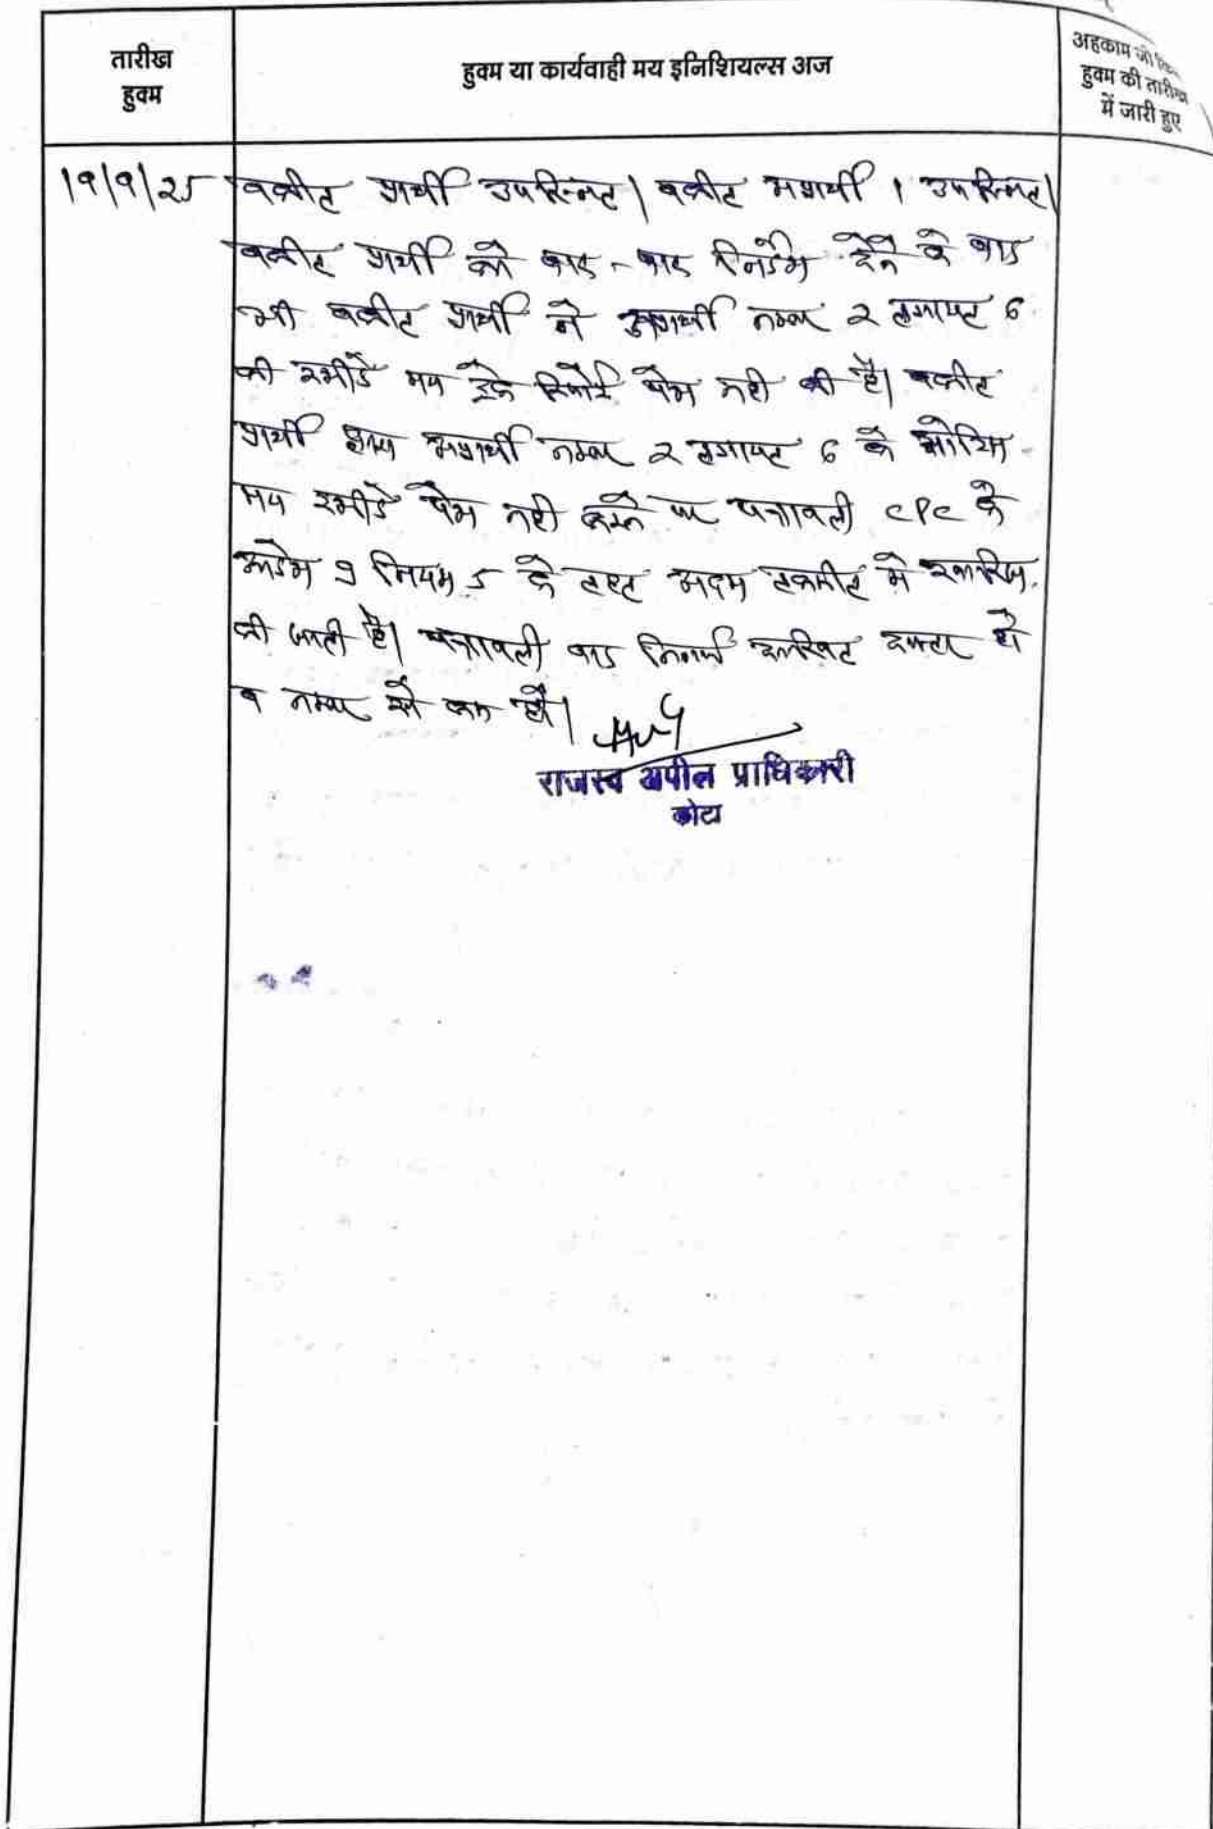 तारीख
हुक्म
हुक्म या कार्यवाही मय इनिशियल्स अज
अहकाम जो
हुक्म की तारीख
में जारी हुए
19/9/25 वकील प्रार्थी उपस्थित। वकील अप्रार्थी 1 उपस्थित।
वकील प्रार्थी को बार-बार निर्देश देने के बाद
भी वकील प्रार्थी ने अप्रार्थी नम्बर 2 लगायत 6
की रसीदें मय ट्रेक रिपोर्ट पेश नही की है। वकील
प्रार्थी द्वारा अप्रार्थी नम्बर 2 लगायत 6 के नोटिस
मय रसीदें पेश नही करने पर पत्रावली CPC के
आदेश 9 नियम 5 के तहत अदम तकमील मे खारिज
की जाती है। पत्रावली बाद निर्णय दाखिल दफ्तर हो
व नम्बर से कम हो।
राजस्व अपील प्राधिकारी
कोटा